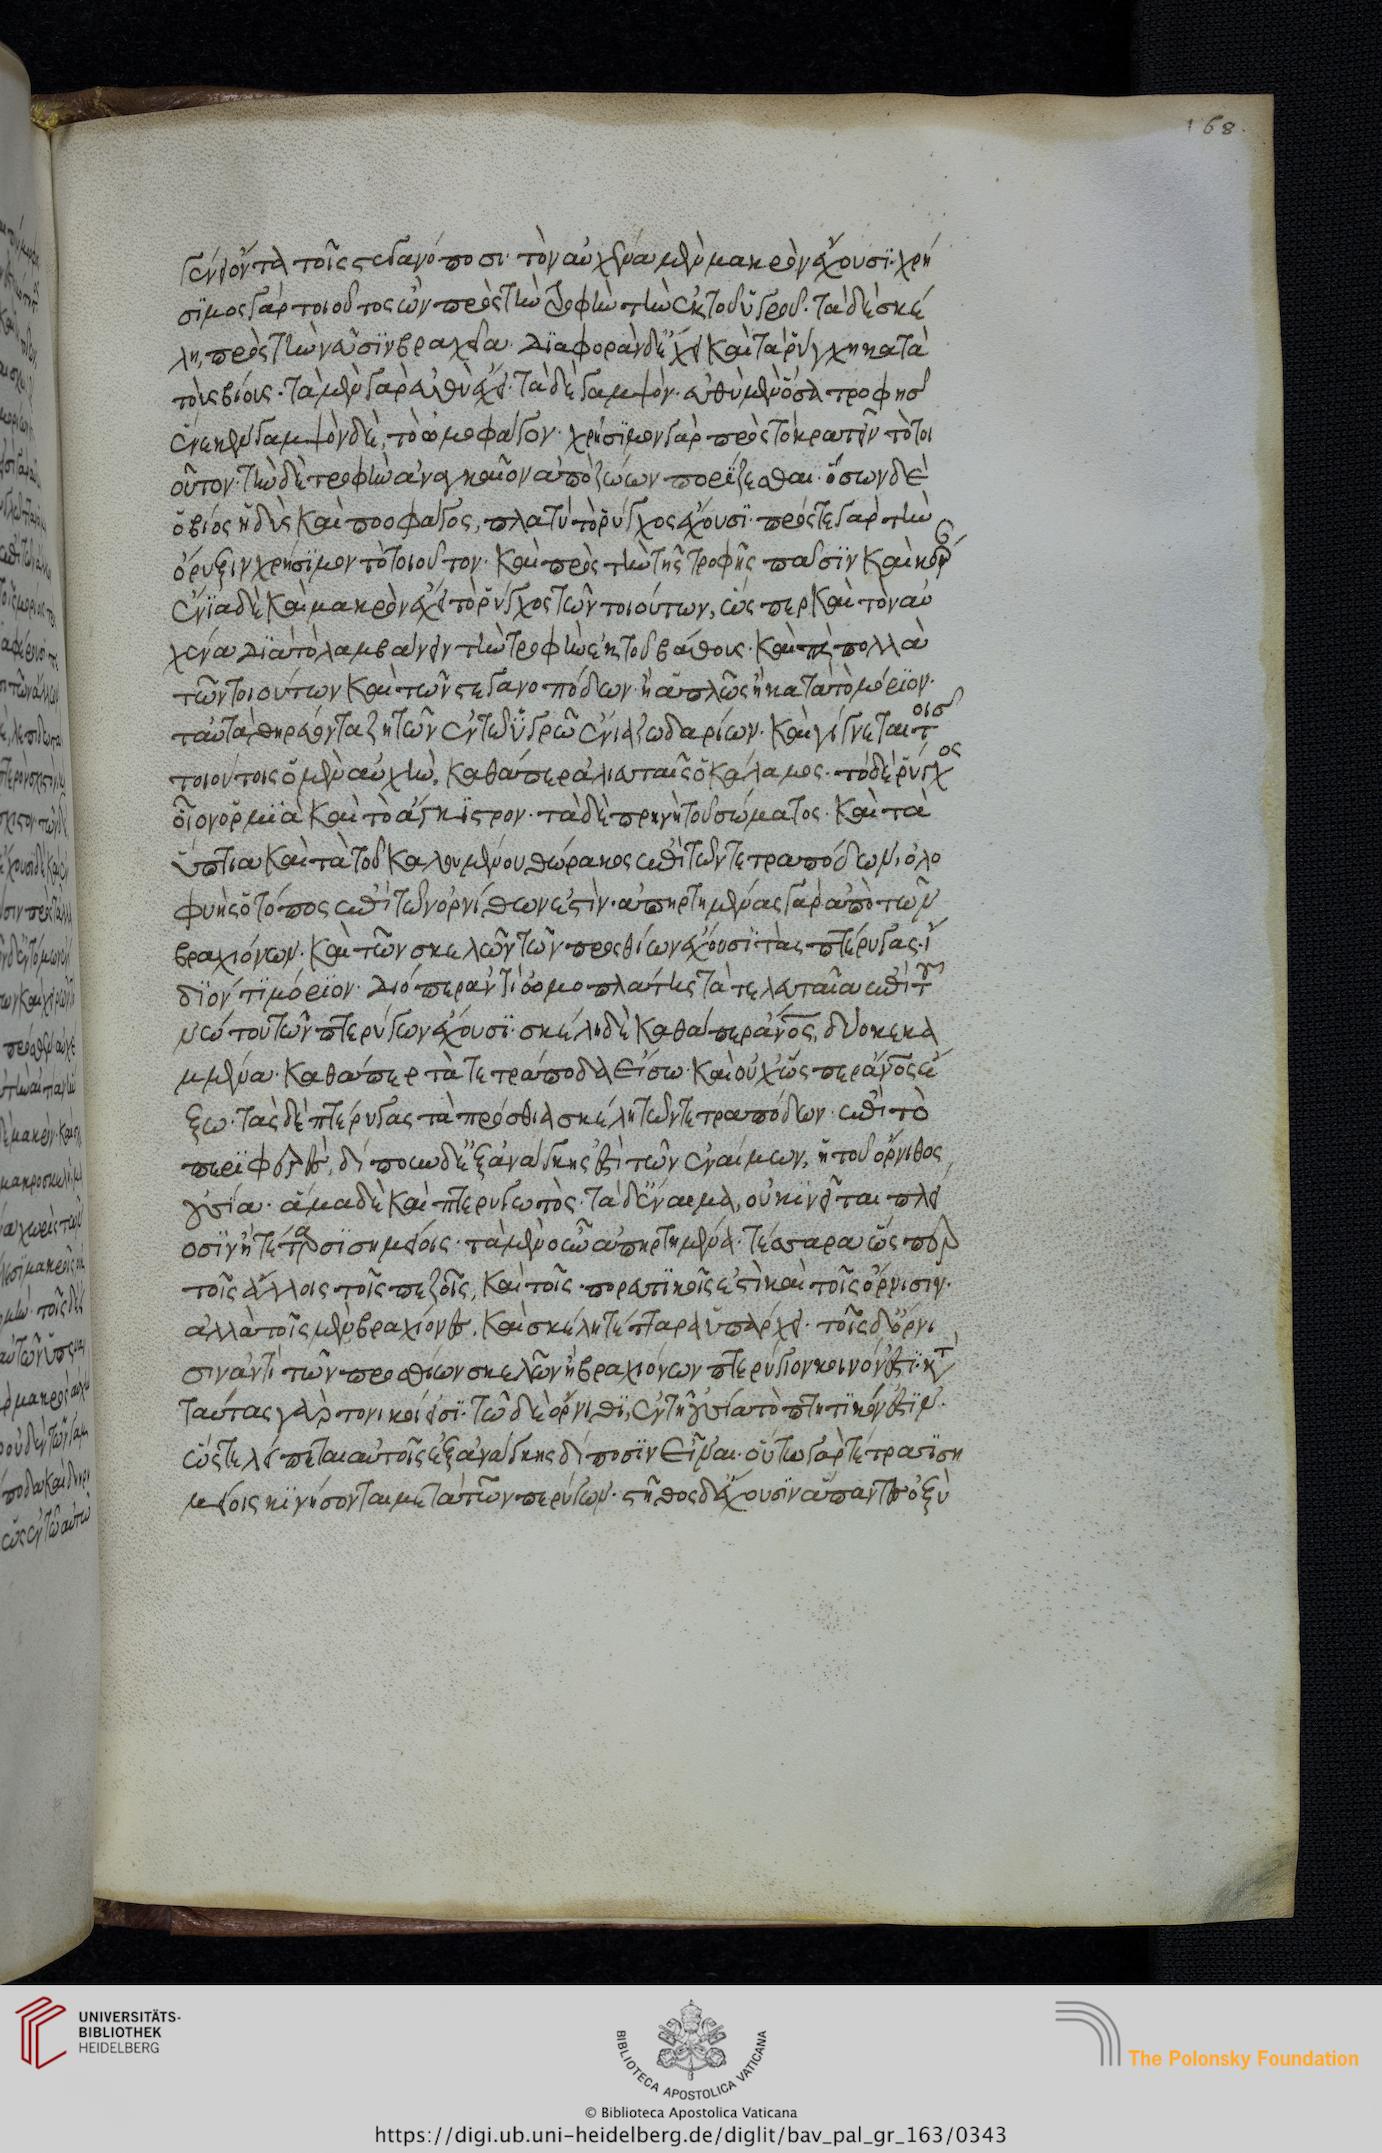 γένοιντα τοῖς στεγανόποσι· τὸν αὐχένα μὲν μακρὸν ἔχουσϊ· χρή
σϊμος γὰρ τοιοῦτος ὢν πρὸς τὴν τροφὴν τὴν ἐκ τοῦ ὑγροῦ· τὰ δὲ σκέ
λη, πρὸς τὴν νεῦσϊν βραχέα· Διαφορὰν δ' ἔχει καὶ τὰ ῥύγχη κατὰ
τοὺς βίους· τὰ μὲν γὰρ εὐθὺ ἔχει· τὰ δὲ γαμψόν· εὐθὺ μὲν ὅσα τροφῆς
ἕνεκεν γαμψὸν δὲ, τὸ ὠμοφάγον· χρήσϊμον γὰρ πρὸς τὸ κρατεῖν τὸ τοι
οῦτον· τὴν δὲ τροφὴν ἀναγκαῖον ἀπὸ ζώων πορίζεσθαι· ὅσων δὲ
ὁ βίος ἡδὺς καὶ ποοφάγος, πλατὺ τὸ ῥύγχος ἔχουσϊ· πρός τε γὰρ τὴν
ὄρυξιν χρήσϊμον τὸ τοιοῦτον· καὶ πρὸς τὴν τῆς τροφῆς πᾶσϊν καὶ κουρ
ἔνϊα δὲ καὶ μακρὸν ἔχει τὸ ῥύγχος τῶν τοιούτων, ὥσπερ καὶ τὸν αὐ
χένα Διὰ τὸ λαμβάνειν τὴν τροφὴν ἐκ τοῦ βάθους· καὶ τὰ πολλὰ
τῶν τοιούτων καὶ τῶν στεγανοπόδων· ἢ ἁπλῶς ἢ κατὰ τὸ μόρϊον·
ταῦτα, θηρεύοντα ζῆ τῶν ἐν τῷ ὑγρῷ ἔνια ζωδαρίων· καὶ γίγνεται τοῖς
τοιούτοις ὁ μὲν αὐχὴν, καθάπερ ἁλιευταῖς ὁ κάλαμος· τὸ δὲ ῥύγχος
οἷον ὁρμϊὰ καὶ τὸ ἄγκϊστρον· τὰ δὲ πρηνῆ τοῦ σώματος· καὶ τὰ
ὕπτια καὶ τὰ τοῦ καλουμένου θώρακος ἐπὶ τῶν τετραπόδων, ὁλο
φυὴς ὁ τόπος ἐπὶ τῶν ὀρνίθων ἐστὶν· ἀπηρτημένας γὰρ ἀπὸ τῶν
βραχιόνων· καὶ τῶν σκελῶν τῶν προσθίων ἔχουσϊ τὰς πτέρυγας· ἴ
δϊόν τϊ μόρϊον· Διόπερ ἀντὶ ὠμοπλάτης τὰ τελευταῖα ἐπὶ τοῦ
νώτου τῶν πτερύγων ἔχουσϊ· σκέλη δὲ καθάπερ ἄνος, δύο κεκα
μμένα· καθάπερ τὰ τετράποδα εἴσω· καὶ οὐχ ὥσπερ ἄνος ἔ
ξω· τὰς δὲ πτέρυγας τὰ πρόσθια σκέλη τῶν τετραπόδων· ἐπὶ τὸ
περϊφερὲς, δίπουν δ' ἐξ ἀνάγκης ἐστὶ τῶν ἐναίμων, ἡ τοῦ ὄρνιθος
οὐσία· ἅμα δὲ καὶ πτερυγωτὸς· τὰ δ' ἔναιμα, οὐ κϊνεῖται πλεί
οσϊν ἢ τέτρασϊ σημείοις· τὰ μὲν οὖν ἀπηρτημένα· τέσσαρα ὥσπερ
τοῖς ἄλλοις τοῖς πεζοῖς, καὶ τοῖς πορευτϊκοῖς ἐστὶ καὶ τοῖς ὄρνισιν·
ἀλλὰ τοῖς μὲν βραχίονες, καὶ σκέλη τέτταρα ὑπάρχει· τοῖς δ' ὄρνι
σιν ἀντὶ τῶν προσθίων σκελῶν ἢ βραχιόνων πτερύγιον κοινόν ἐστϊ· κατὰ
ταύτας γὰρ τονικοί εἰσϊ· τῶ δὲ ὄρνιθϊ, ἐν τῆ οὐσία τὸ πτητϊκόν ἐστϊν·
ὥστε λείπεται αὐτοῖς ἐξ ἀνάγκης δίποσϊν εἶναι· οὕτω γὰρ τέτρασϊ ση
μείοις κϊνήσονται μετὰ τῶν πτερύγων· στῆθος δ' ἔχουσϊν ἅπαντες ὀξὺ
168.
UNIVERSITÄTS-
BIBLIOTHEK
HEIDELBERG
BIBLIOTECA APOSTOLICA VATICANA
The Polonsky Foundation
© Biblioteca Apostolica Vaticana
https://digi.ub.uni-heidelberg.de/diglit/bav_pal_gr_163/0343